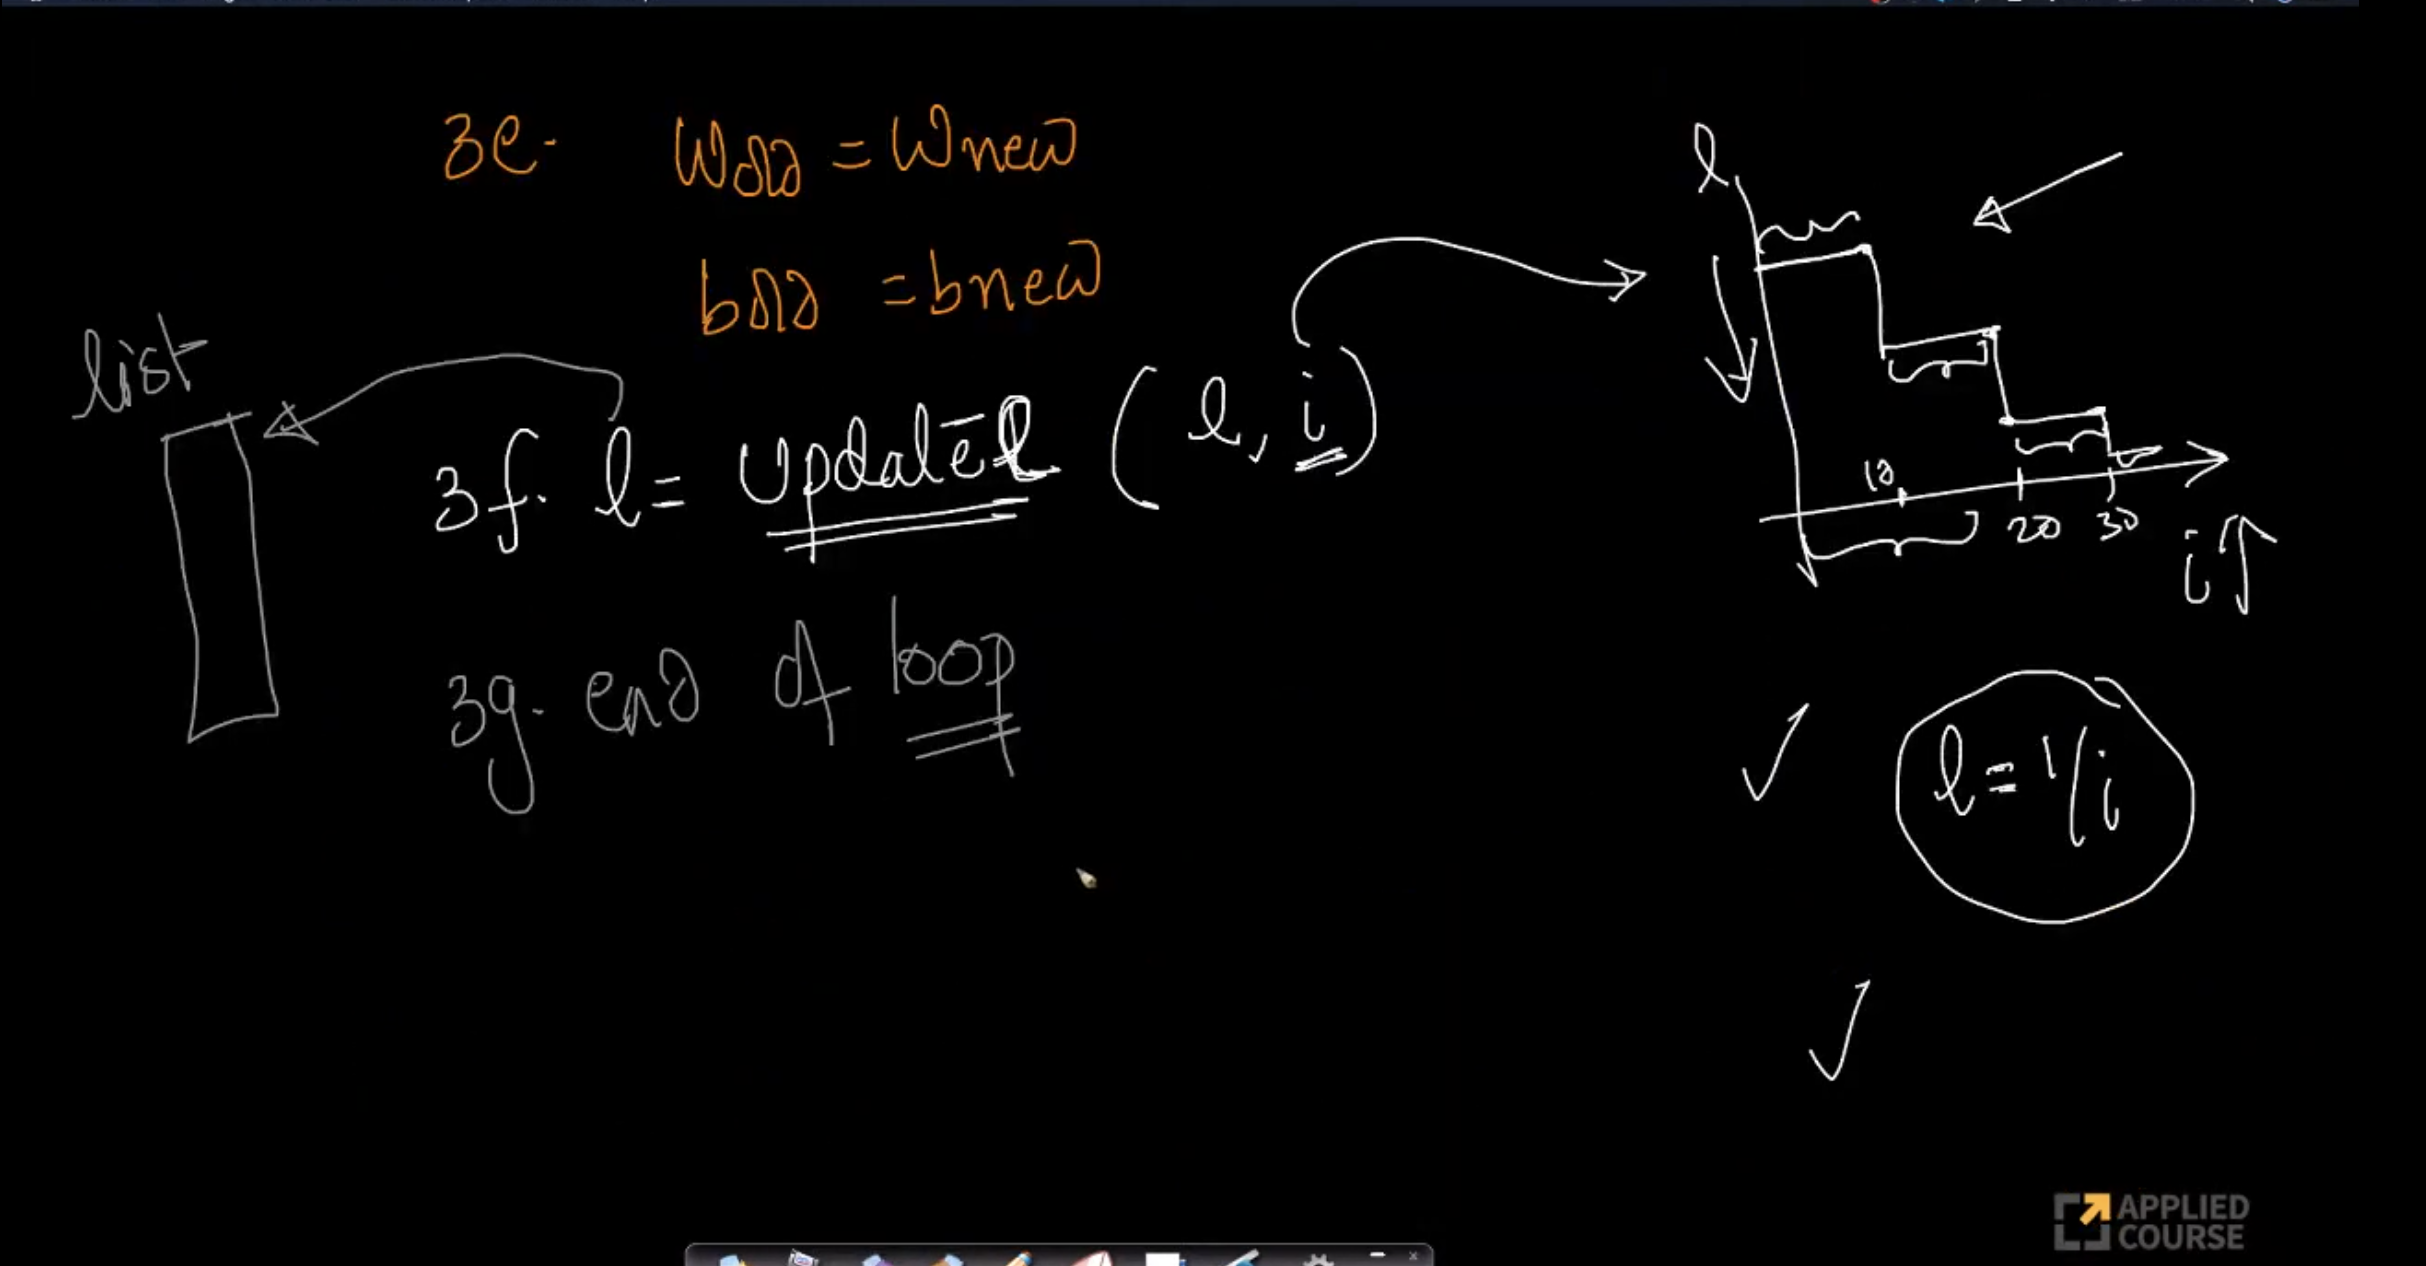 3e. Wold = Wnew
bold = bnew
list
3f. l = updatel (l, i)
3g. end of loop
l
10
20
30
i↑
l = 1/i
APPLIED
COURSE